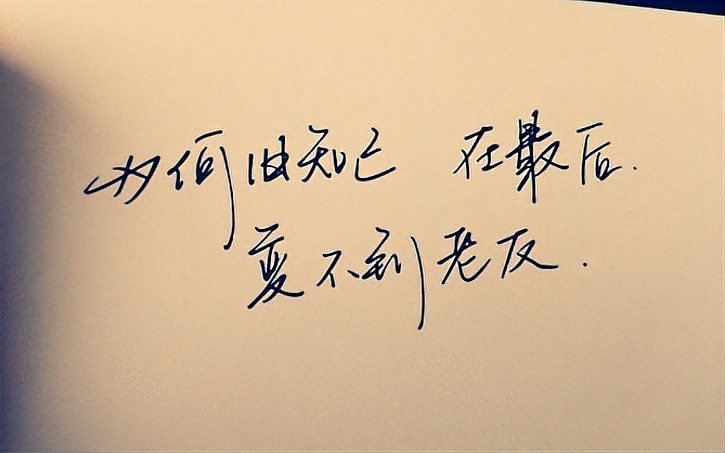 为何旧知己 在最后.
变不到老友.